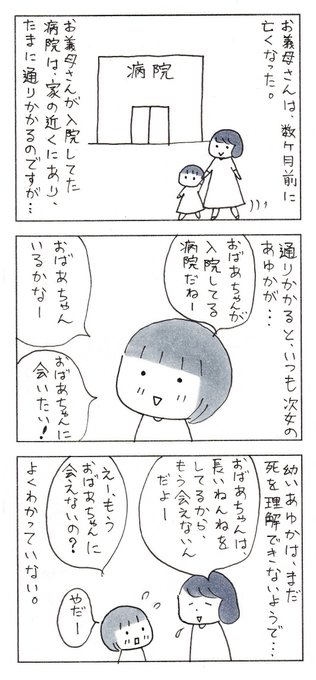 お義母さんは、数ヶ月前に
亡くなった。
病院
お義母さんが入院してた
病院は、家の近くにあり、
たまに通りかかるのですが…
通りかかると、いつも次女の
あゆかが…
おばあちゃんが
入院してる
病院だねー
おばあちゃん
いるかなー
おばあちゃんに
会いたい！
幼いあゆかは、まだ
死を理解できないようで…
おばあちゃんは、
長いねんねを
してるから、
もう会えないん
だよー
えー、もう
おばあちゃんに
会えないの？
やだー
よくわかっていない。